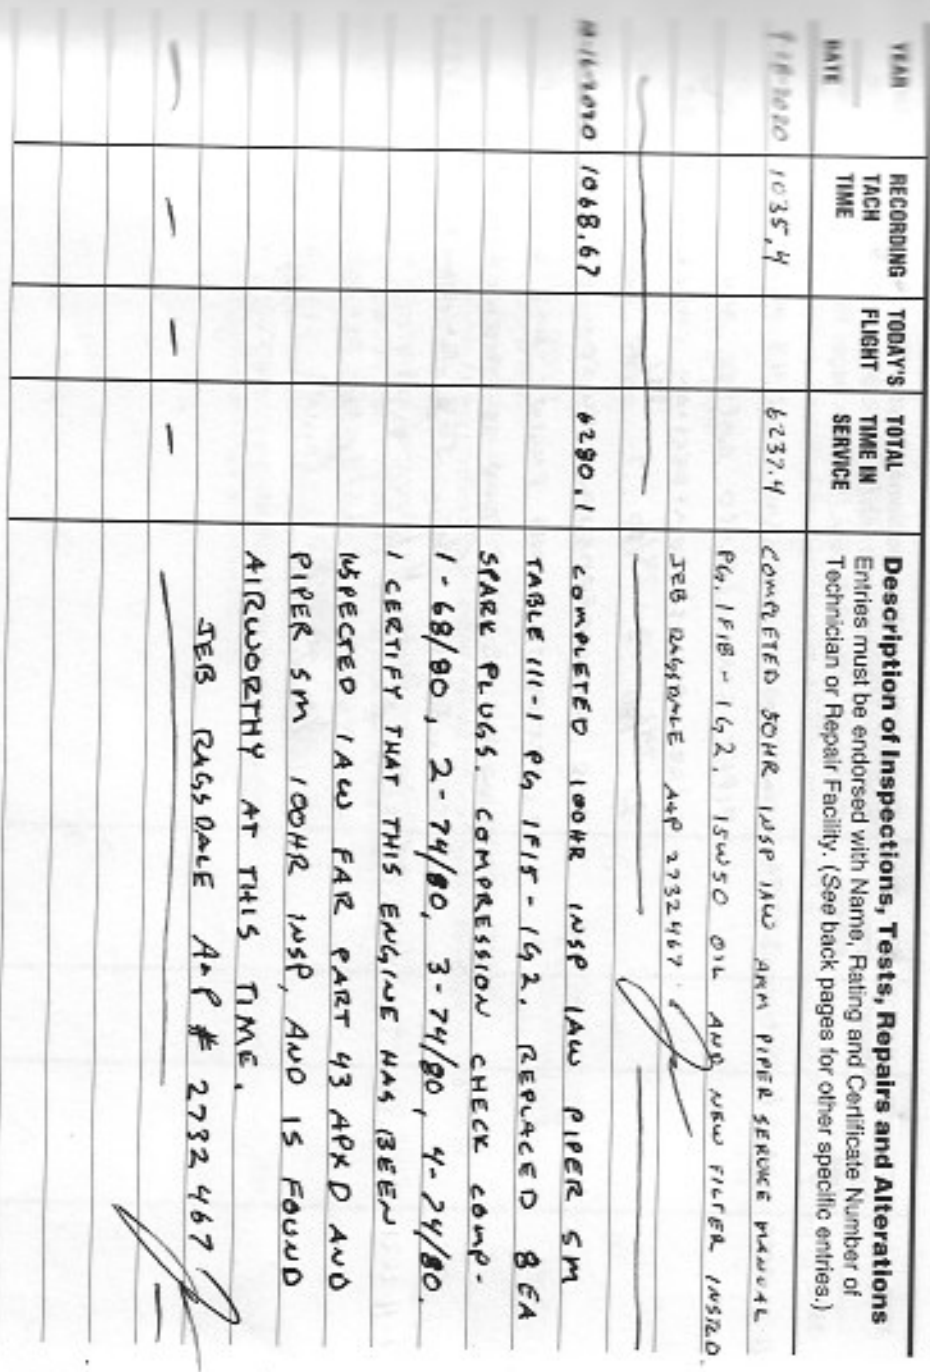 YEAR
DATE
RECORDING
TACH
TIME
TODAY'S
FLIGHT
TOTAL
TIME IN
SERVICE
Description of Inspections, Tests, Repairs and Alterations
Entries must be endorsed with Name, Rating and Certificate Number of
Technician or Repair Facility. (See back pages for other specific entries.)
2020 1035.4 6237.4 COMPLETED 50HR INSP IAW AMM PIPER SERVICE MANUAL
PG. 1F18 - 1G2. 15W50 OIL AND NEW FILTER INSTLD.
JEB RAGSDALE A&P 2732467
1068.67 6280.1 COMPLETED 100HR INSP IAW PIPER SM
TABLE III-1 PG 1F15 - 1G2. REPLACED 8 EA
SPARK PLUGS. COMPRESSION CHECK COMP-
1-68/80, 2-74/80, 3-74/80, 4-74/80.
I CERTIFY THAT THIS ENGINE HAS BEEN
INSPECTED IAW FAR PART 43 APX D AND
PIPER SM 100HR INSP, AND IS FOUND
AIRWORTHY AT THIS TIME.
JEB RAGSDALE A&P # 2732467